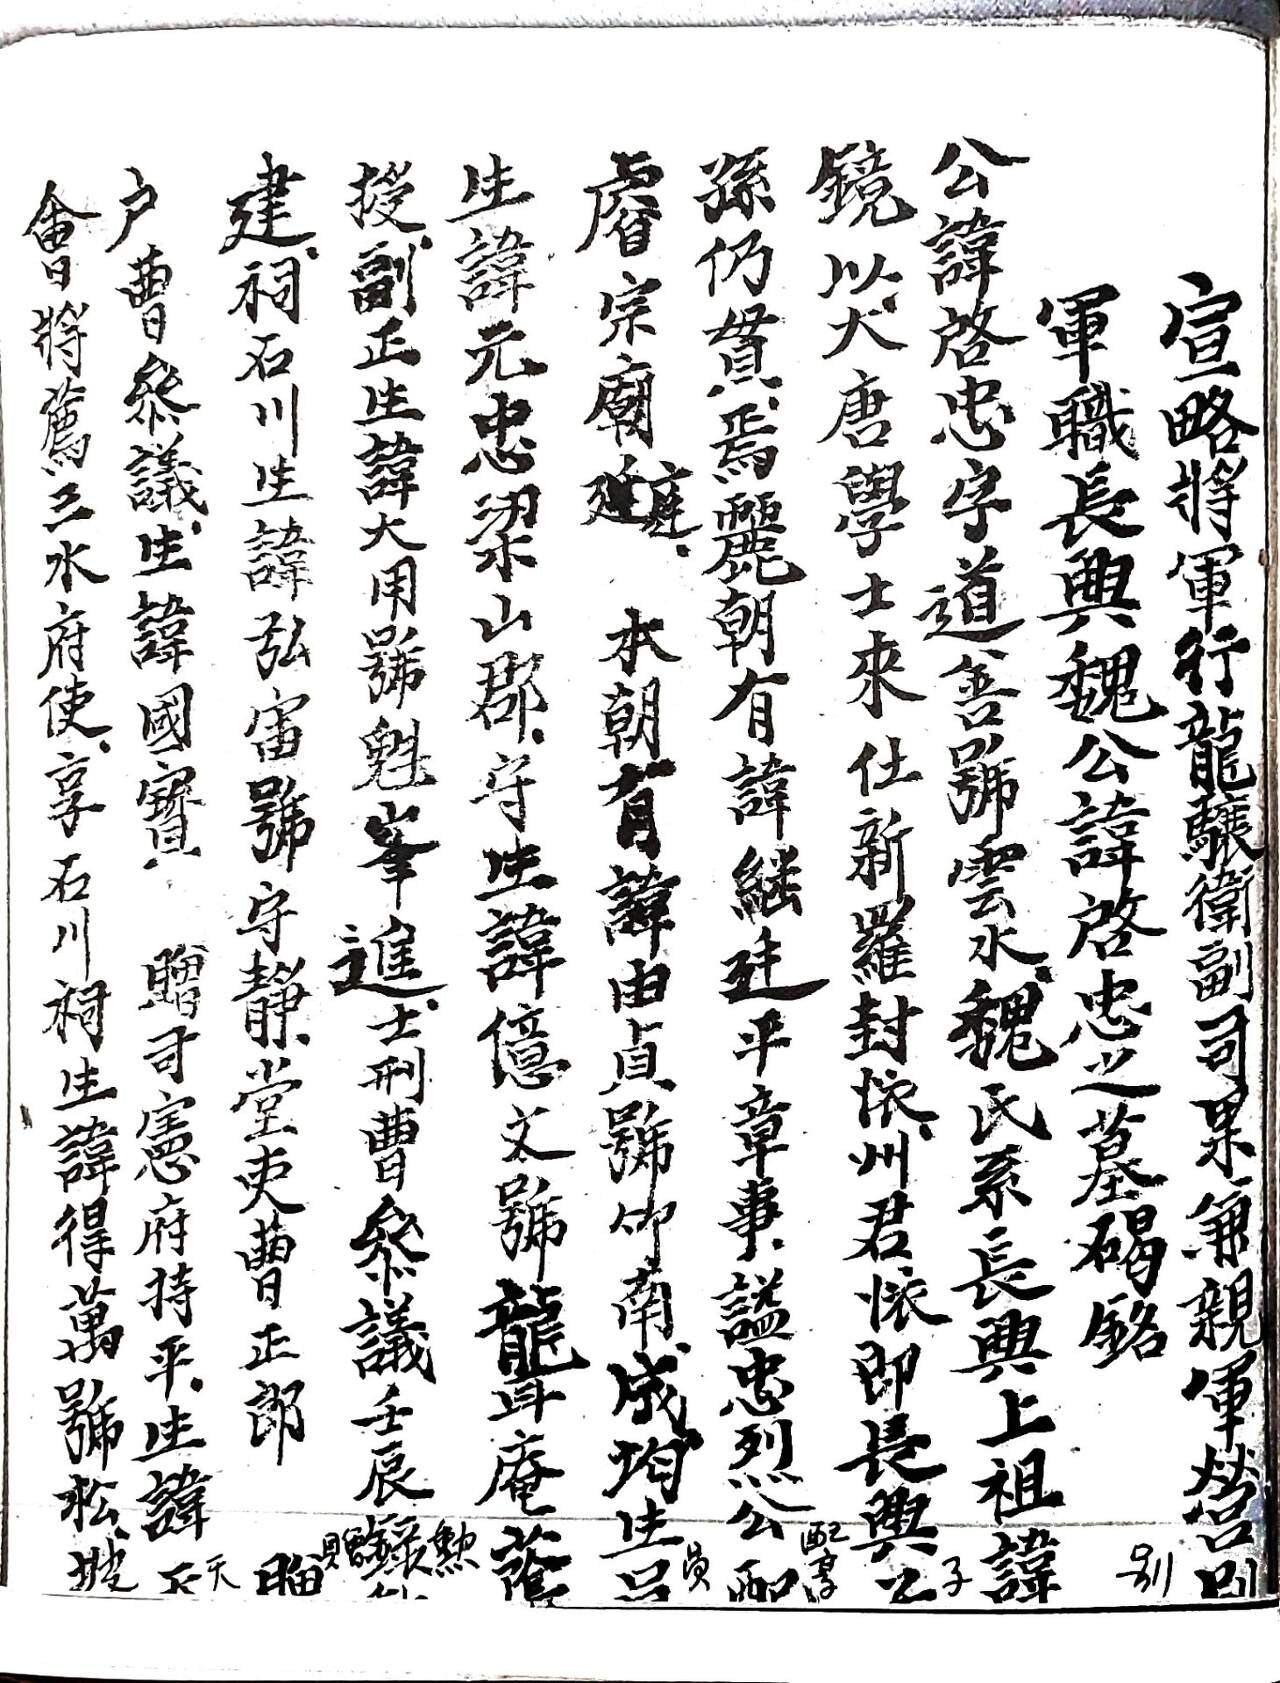 宣略將軍行龍驤衛副司果兼親軍營別
軍職長興魏公諱啓忠之墓碣銘
公諱啓忠字道善號雲水魏氏系長興上祖諱
鏡以大唐學士來仕新羅封懷州君懷即長興子
孫仍貫焉麗朝有諱繼廷平章事謚忠烈公配享
睿宗廟庭 本朝有諱由貞號仰南成均生員
生諱元忠梁山郡守生諱億文號聾庵蔭
授副正生諱大用號魁峯進士刑曹參議壬辰錄勲
建祠石川生諱弘宙號守靜堂吏曹正郎 贈
户曹參議生諱國寶 贈司憲府持平生諱天
會將薦三水府使享石川祠生諱得萬號松坡